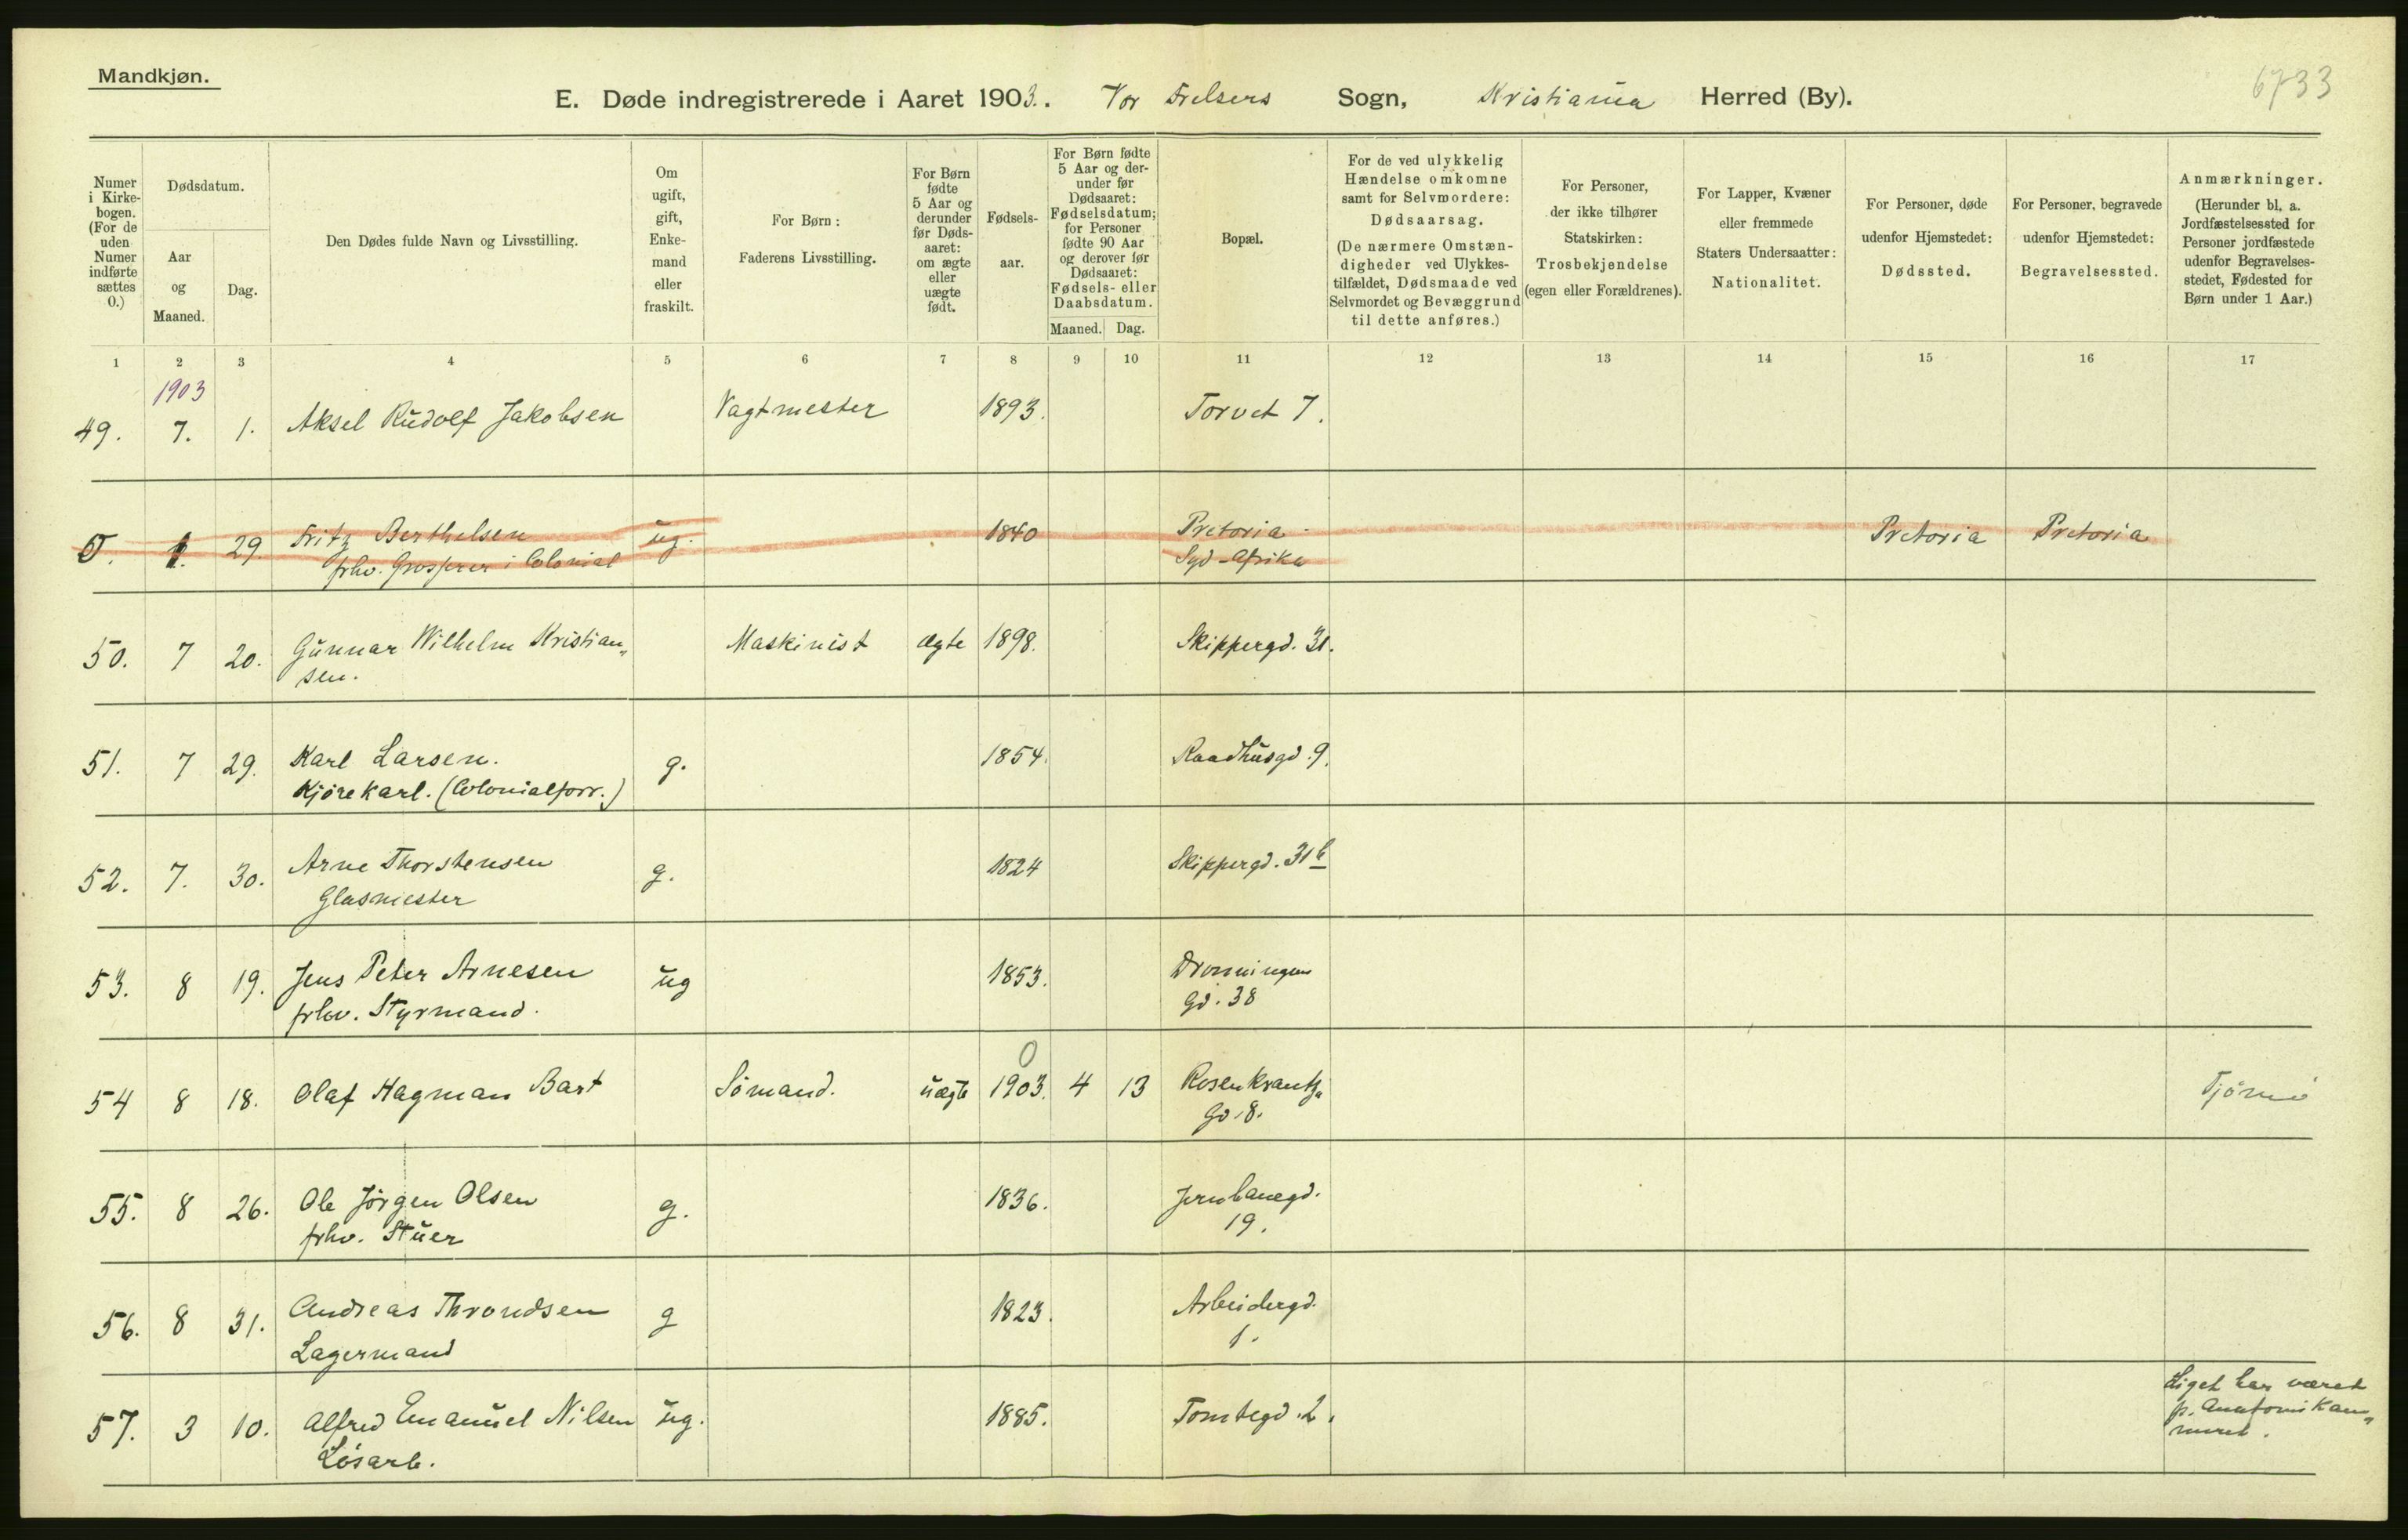 Mandkjøn.
E. Døde indregistrerede i Aaret 1903. Vor Frelsers Sogn, Kristiania Herred (By).
6733
Numer i Kirkebogen. (For de uden Numer indførte sættes 0.)
Dødsdatum.
Aar og Maaned.
Dag.
Den Dødes fulde Navn og Livsstilling.
Om ugift, gift, Enkemand eller fraskilt.
For Børn: Faderens Livsstilling.
For Børn fødte 5 Aar og derunder før Dødsaaret: om ægte eller uægte født.
Fødselsaar.
For Børn fødte 5 Aar og derunder før Dødsaaret: Fødselsdatum; for Personer fødte 90 Aar og derover før Dødsaaret: Fødsels- eller Daabsdatum.
Maaned. Dag.
Bopæl.
For de ved ulykkelig Hændelse omkomne samt for Selvmordere: Dødsaarsag. (De nærmere Omstændigheder ved Ulykkestilfældet, Dødsmaade ved Selvmordet og Bevæggrund til dette anføres.)
For Personer, der ikke tilhører Statskirken: Trosbekjendelse (egen eller Forældrenes).
For Lapper, Kvæner eller fremmede Staters Undersaatter: Nationalitet.
For Personer, døde udenfor Hjemstedet: Dødssted.
For Personer, begravede udenfor Hjemstedet: Begravelsessted.
Anmærkninger. (Herunder bl. a. Jordfæstelsessted for Personer jordfæstede udenfor Begravelsesstedet, Fødested for Børn under 1 Aar.)
1 2 3 4 5 6 7 8 9 10 11 12 13 14 15 16 17
1903
49. 7. 1. Aksel Rudolf Jakobsen Vagtmester 1893. Torvet 7.
0. 1. 29. Fritz Berthelsen ug. 1840 Pretoria Pretoria Pretoria
frhv. Grosserer i Colonial Syd-Afrika
50. 7 20. Gunnar Wilhelm Kristian„ Maskinist ægte 1898. Skippergd. 31.
sen.
51. 7 29. Karl Larsen. g. 1854. Raadhusgd. 9.
Kjørekarl. (Colonialforr.)
52. 7. 30. Arne Thorstensen g. 1824 Skippergd. 31 b
Glasmester
53. 8 19. Jens Peter Arnesen ug 1853. Dronningens
frhv. Styrmand. Gd. 38
0
54 8 18. Olaf Hagman Bast Sømand. uægte 1903. 4 13 Rosenkrantz„ Tjømø
Gd. 8.
55. 8 26. Ole Jørgen Olsen g. 1836. Jernbanegd.
frhv. Stuer 19.
56. 8 31. Andreas Throndsen g 1823. Arbeidergd.
Lagermand 1.
57. 3 10. Alfred Emanuel Nilsen ug. 1885. Tomtegd. 2.
Løsarb.
Liget har været
p. Anatomikam„
meret.